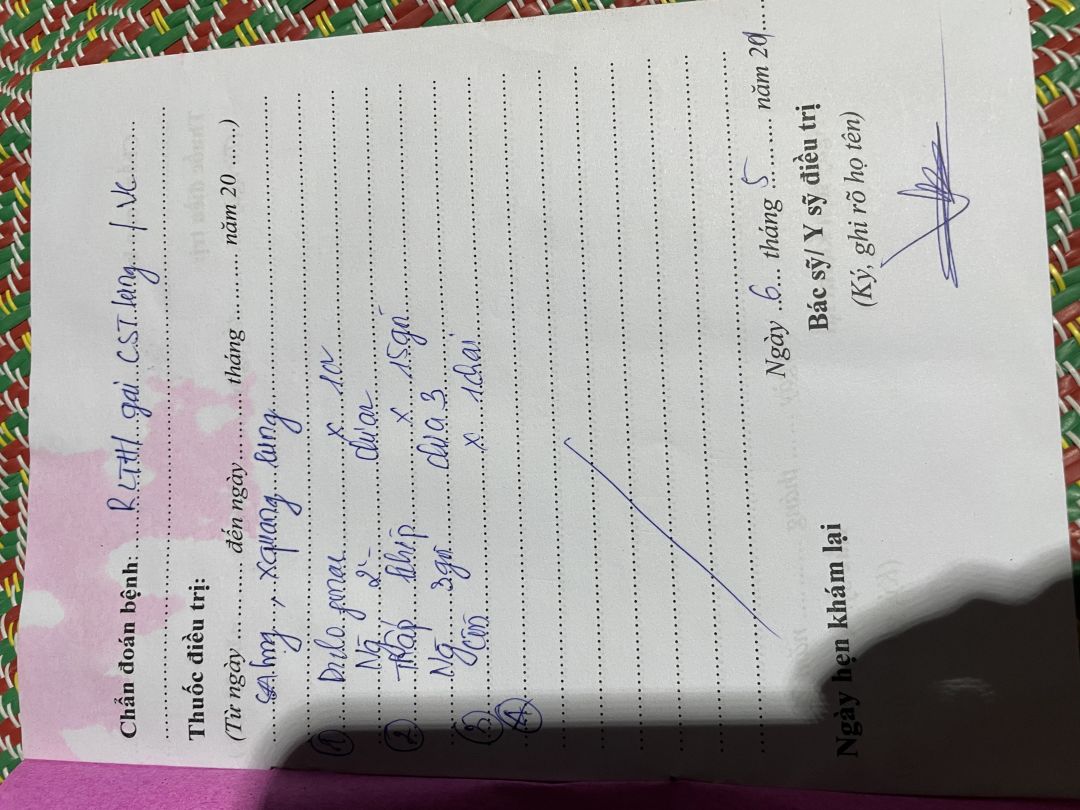 Chẩn đoán bệnh ..... RLTH1 gai CST lưng / VK
Thuốc điều trị:
(Từ ngày ........... đến ngày ........... tháng ........... năm 20 .....)
, xquang lưng
① Dulo x 10
Ng 2
② Thấp khớp x 15 gói
Ng 3 gói chia 3
③ Cồn x 1 chai
④
Ngày 6 tháng 5 năm 20
Ngày hẹn khám lại
Bác sỹ/ Y sỹ điều trị
(Ký, ghi rõ họ tên)